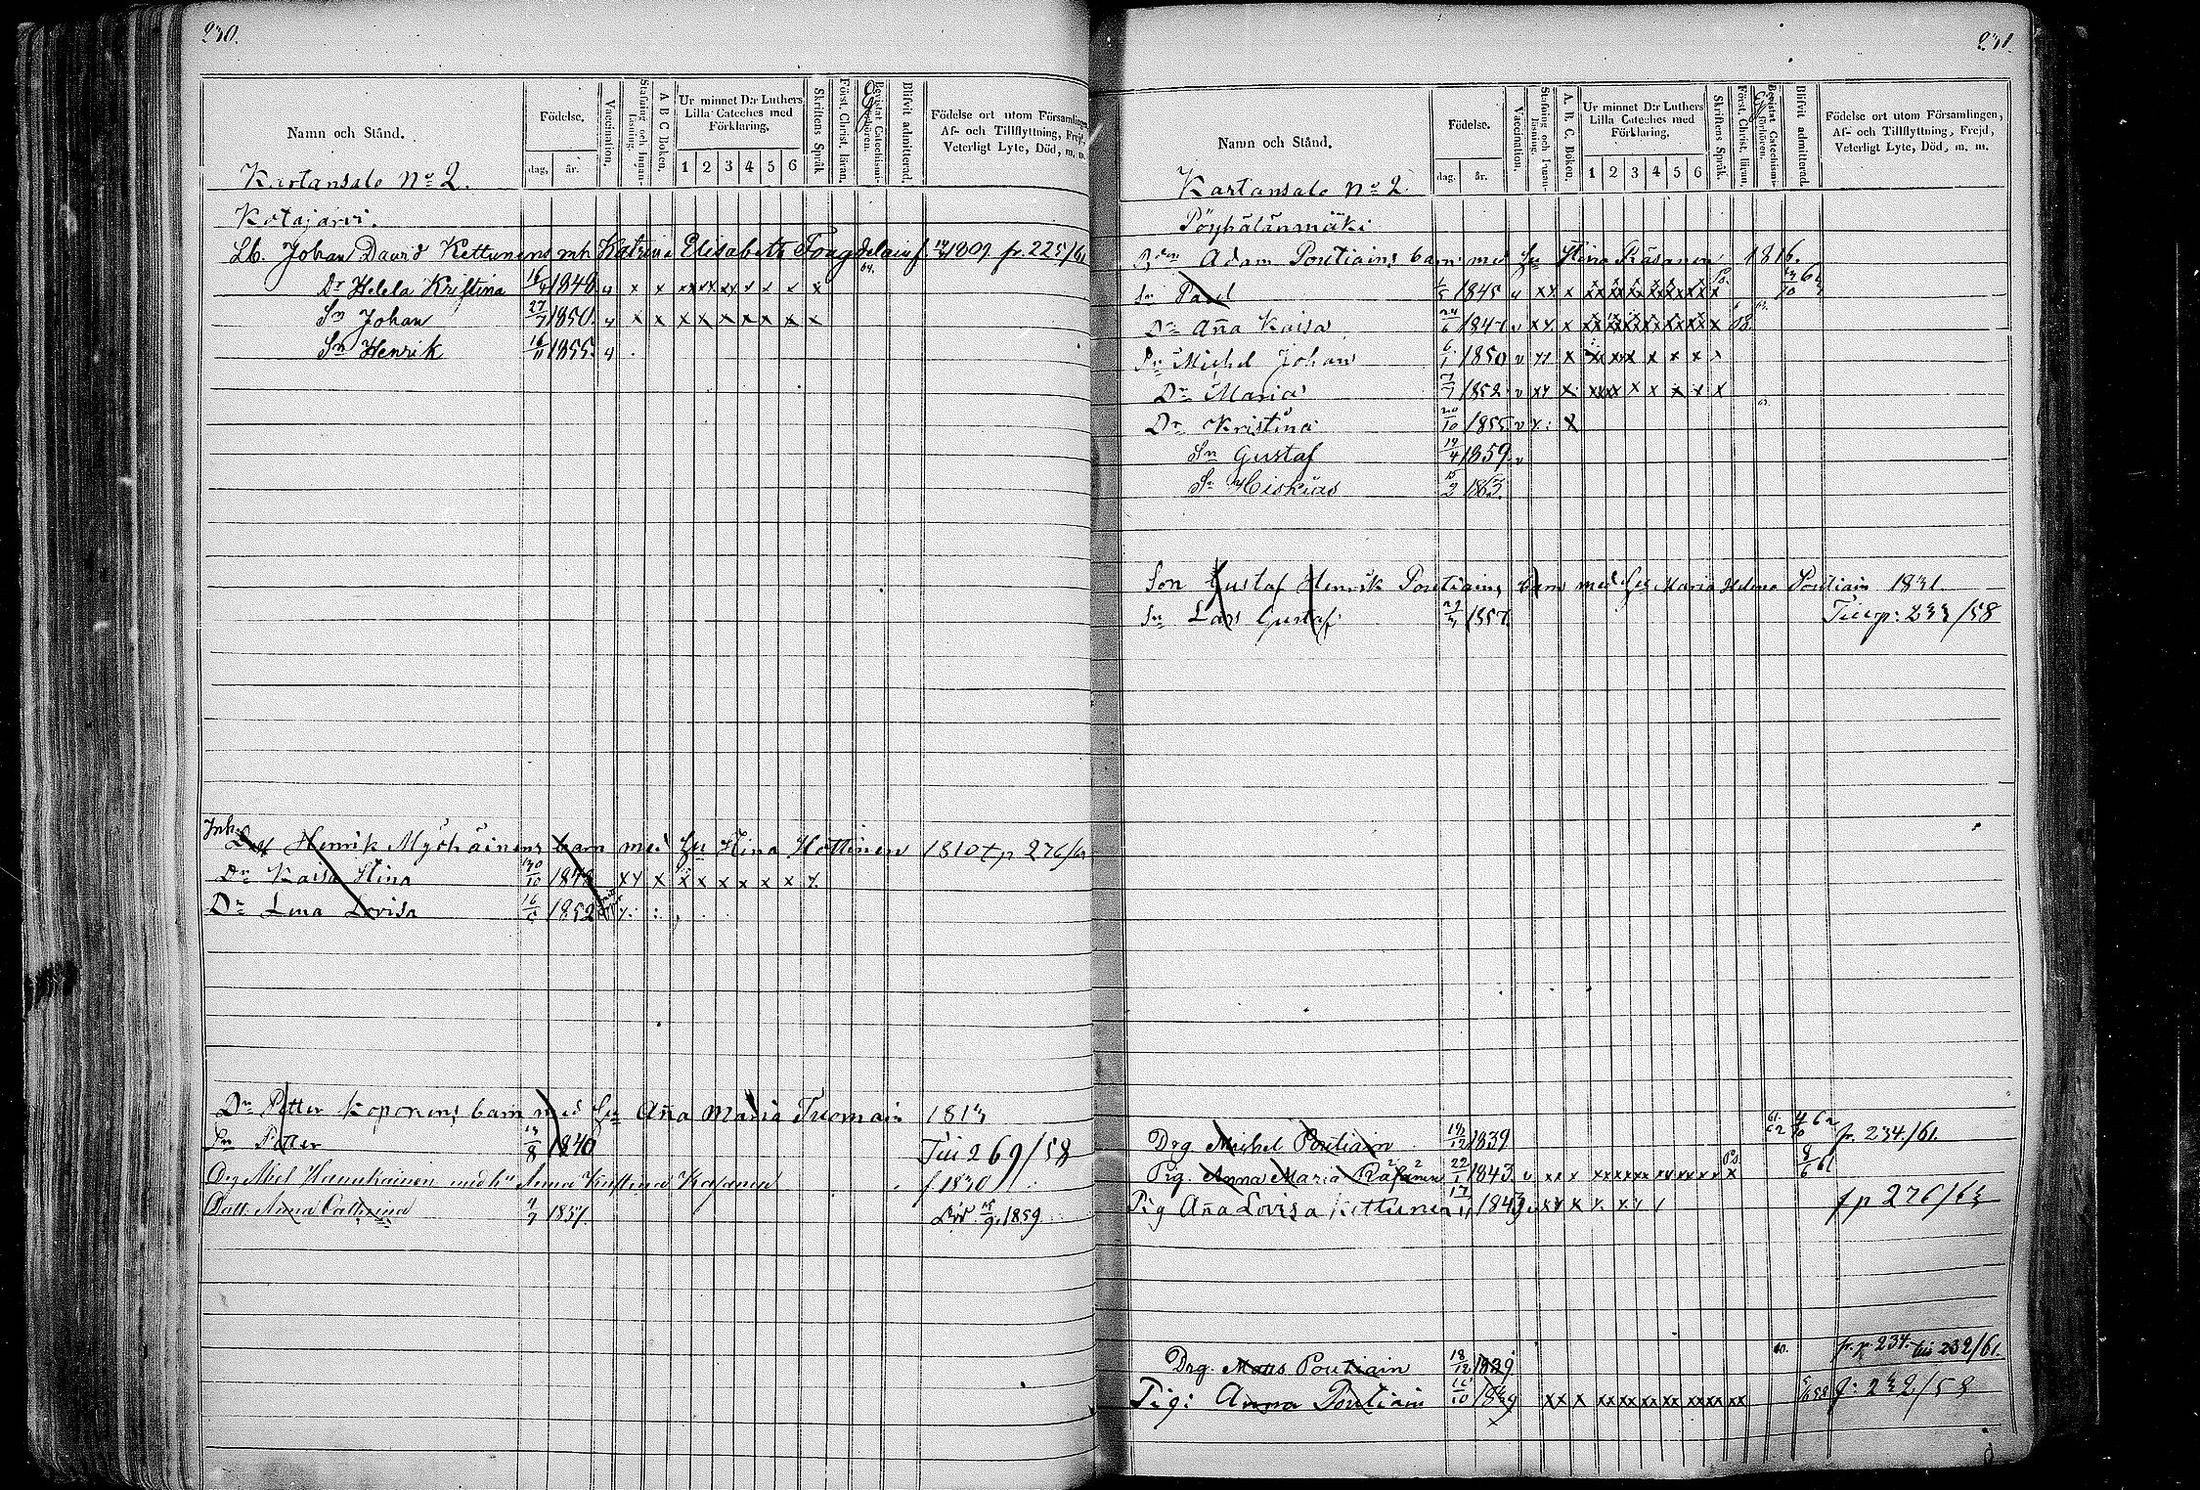 230.
Namn och Stånd.
Födelse.
dag. år.
Vaccination.
Stafning och Innan-läsning.
A B C Boken.
Ur minnet D:r Luthers Lilla Cateches med Förklaring.
1 2 3 4 5 6
Skriftens Språk
Först. Christ. läran.
Bevistat Catechismi-förhören.
Blifvit admitterad.
Födelse ort utom Församlingen,
Af- och Tillflyttning, Frejd,
Veterligt Lyte, Död, m. m.
Kartansalo No 2.
Kotajärvi.
Lb. Johan David Kettunens mh Katrina Elisabeth 1809 fr. 225/61
Dr Helela Kristina 16/4 1848 v x x xx xx xx x x x x
Sn Johan 27/7 1850 v x x x x x x x x x
Sn Henrik 16/11 1855 v
Inh.
Henrik Myöhäinens barn med hu Stina Hottinen 1810 tp 276/61
Dr Kaisa Stina 30/10 1848 xx x x x x x x x x
Dr Lena Lovisa 16/5 1852
Dr Petter Koponens barn med hu Aña Maria Tuomain 1813
Sn Petter 13/8 1840 Till 269/58
Drg Abel Hanukainen med hu Anna Kristina Kasanen f 1830
Dott. Anna Catharina 7/7 1857 Död 15/9 1859
231.
Namn och Stånd.
Födelse.
dag. år.
Vaccination.
Stafning och Innan-läsning.
A. B. C. Boken.
Ur minnet D:r Luthers Lilla Cateches med Förklaring.
1 2 3 4 5 6
Skriftens Språk.
Först. Christ. läran.
Bevistat Catechismi-förhören.
Blifvit admitterad.
Födelse ort utom Församlingen,
Af- och Tillflyttning, Frejd,
Veterligt Lyte, Död, m. m.
Kartansalo No 2.
Pöyhälänmäki
Adam Poutiains barn med hu Stina Räsänen 1816.
Sn Paul 1/5 1845 v xx x
Dr Aña Kaisa 24/6 1847 v xx x
Sn Michel Johan 6/1 1850 v xx x xx xx x x x x x
Dr Maria 7/7 1852 v xx x xx xx x x x x x
Dr Kristina 20/10 1855 v x: x
Sn Gustaf 19/4 1859 v
Sn Hiskias 15/2 1863.
Son Gustaf Henrik Poutiains barn med hu Maria Helena Poutiain 1831.
Sn Lars Gustaf 1857. Till p: 233/58
Drg. Michel Poutiain 18/12 1839 fr. 234/61.
Pig. Anna Maria Räsänen 22/1 1843 v xx x xx xx xx xx xx xx x 8/6 61
Pig Aña Lovisa Kettunen 17/11 1843 v xx x x x x fp 276/63
Drg. Mats Poutiain 18/12 1839 fr. p 234. till 232/61
Pig: Anna Poutiain 1839 xx x xx xx xx xx xx xx xx p: 232/58